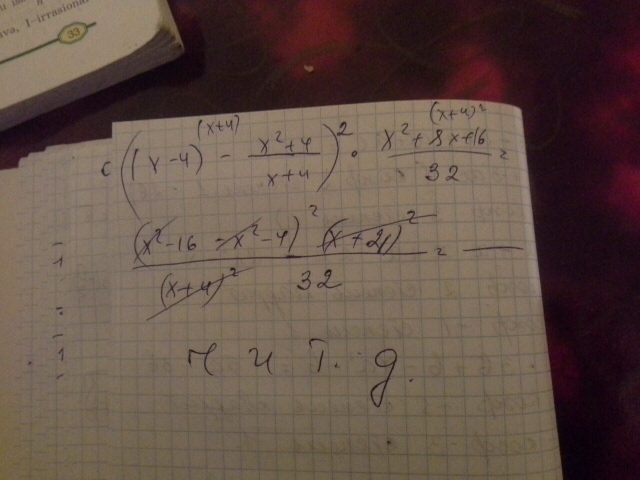 ava, I–irrasional
33
c ((x-4)^(x+4) - (x²+4)/(x+4))² · (x²+8x+16)^(x+4)²/32 =
(x²-16-x²-4)² (x+4)²/((x+4)² 32) = —
ч и т. д.